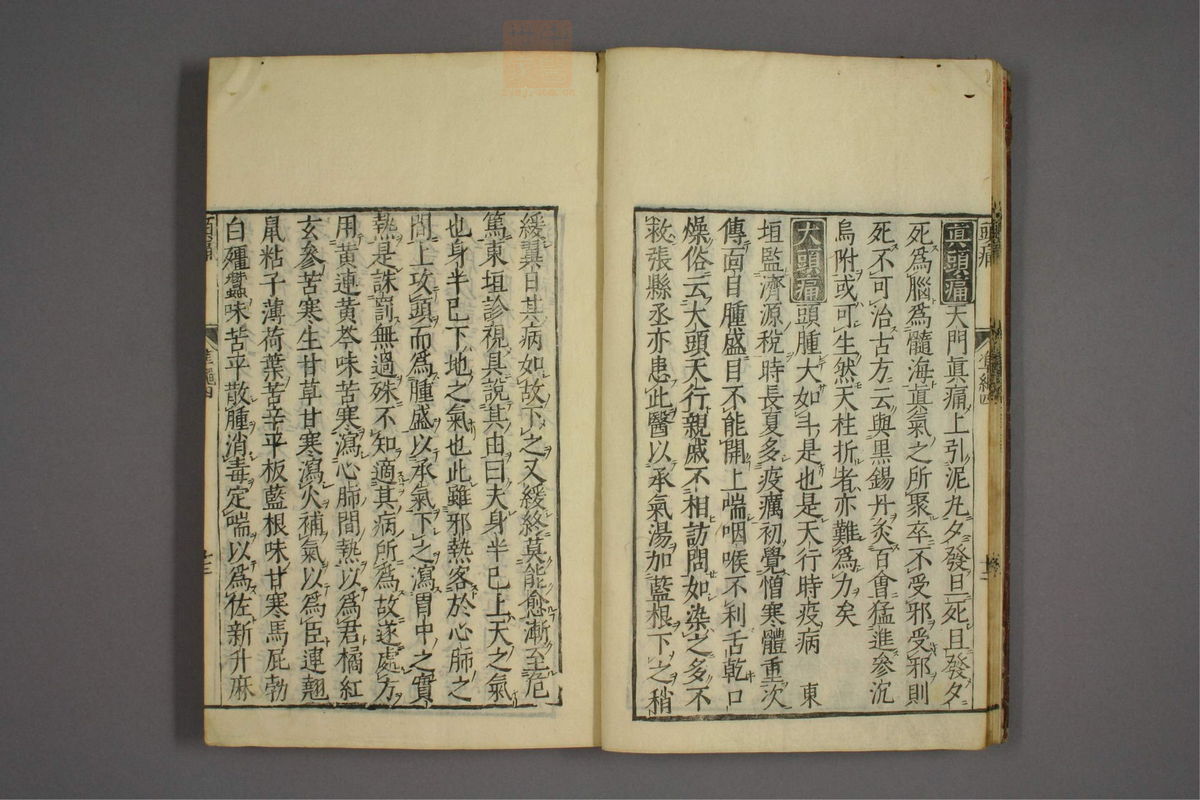 頭痛 準繩四
眞頭痛 天門眞痛上引泥丸夕發旦死旦發夕
死爲腦爲髓海眞氣之所聚卒不受邪受邪則
死不可治古方云與黑錫丹灸百會猛進參沉
烏附或可生然天柱折者亦難爲力矣
大頭痛 頭腫大如斗是也是天行時疫病 東
垣監濟源稅時長夏多疫癘初覺憎寒體重次
傳面目腫盛目不能開上喘咽喉不利舌乾口
燥俗云大頭天行親戚不相訪問如染之多不
救張縣丞亦患此醫以承氣湯加藍根下之稍
緩翼日其病如故下之又緩終莫能愈漸至危
篤東垣診視具說其由曰夫身半已上天之氣
也身半已下地之氣也此雖邪熱客於心肺之
間上攻頭而爲腫盛以承氣下之瀉胃中之實
熱是誅罰無過殊不知適其病所爲故遂處方
用黃連黃芩味苦寒瀉心肺間熱以爲君橘紅
玄參苦寒生甘草甘寒瀉火補氣以爲臣連翹
鼠粘子薄荷葉苦辛平板藍根味甘寒馬屁勃
白殭蠶味苦平散腫消毒定喘以爲佐新升麻
頭痛 準繩四